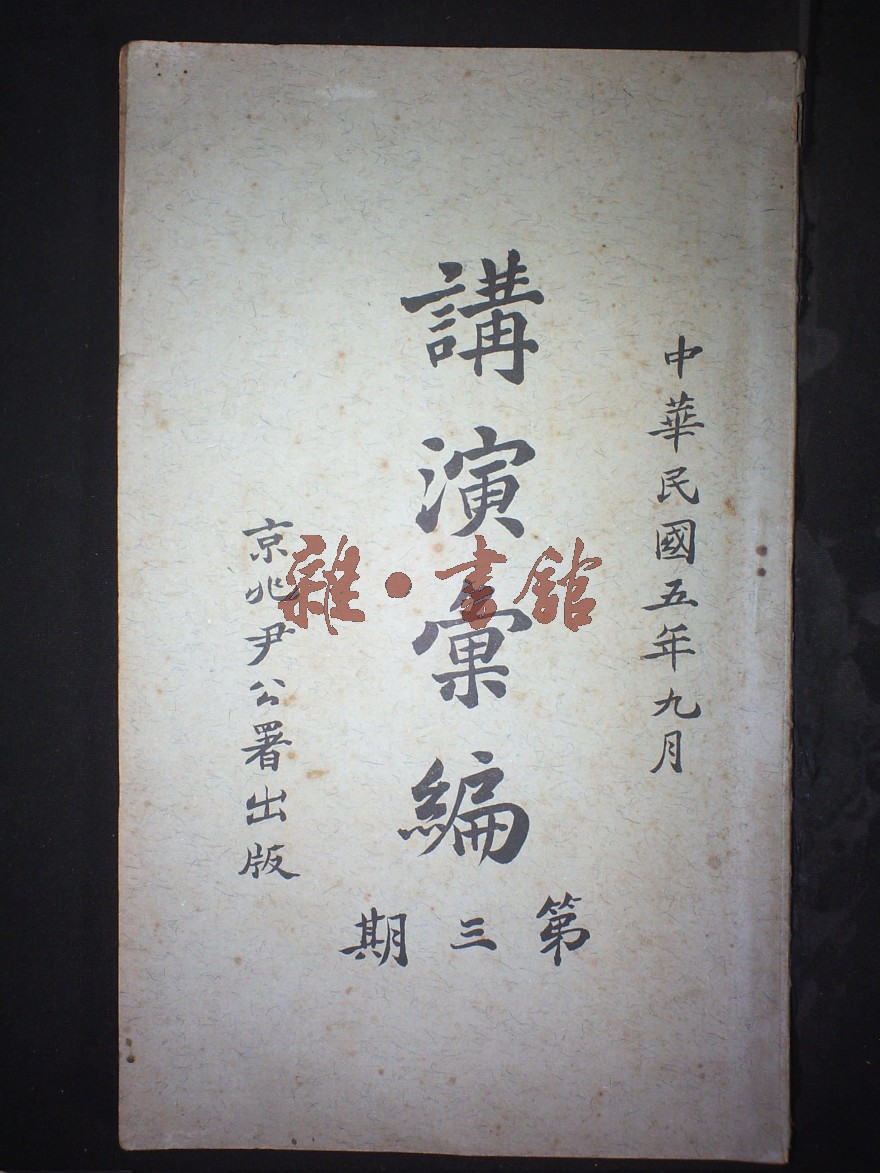 中華民國五年九月
講演彙編
第三期
京兆尹公署出版
雜·書館